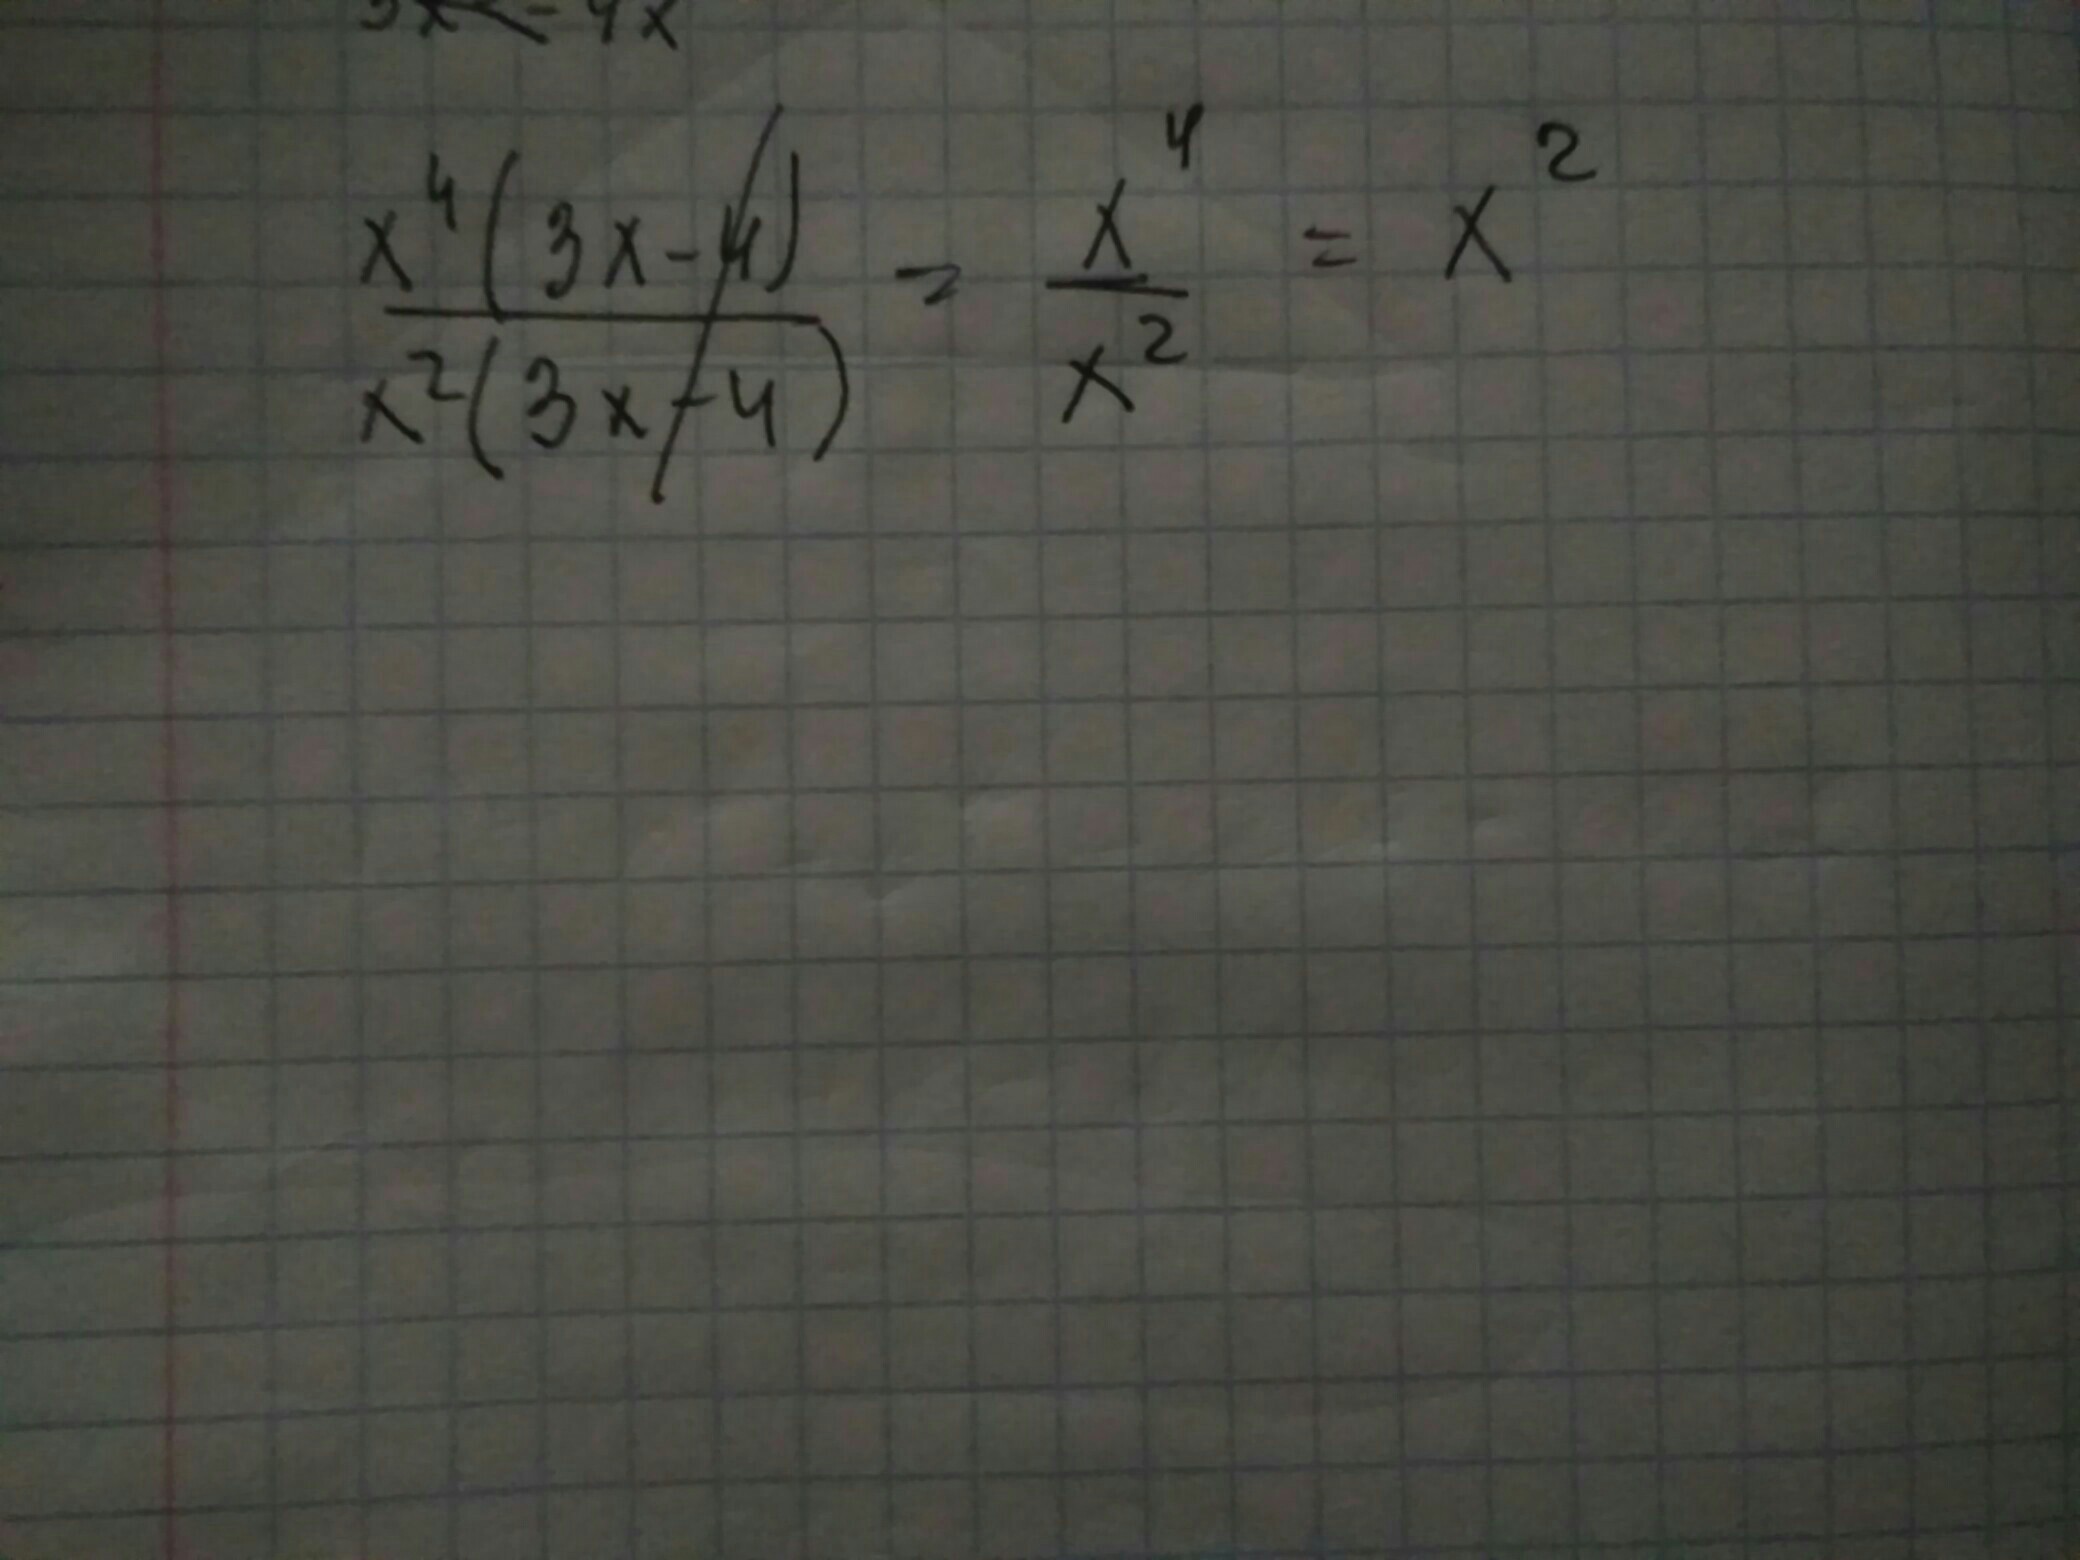 x⁴(3x-4) / x²(3x-4) = x⁴ / x² = x²